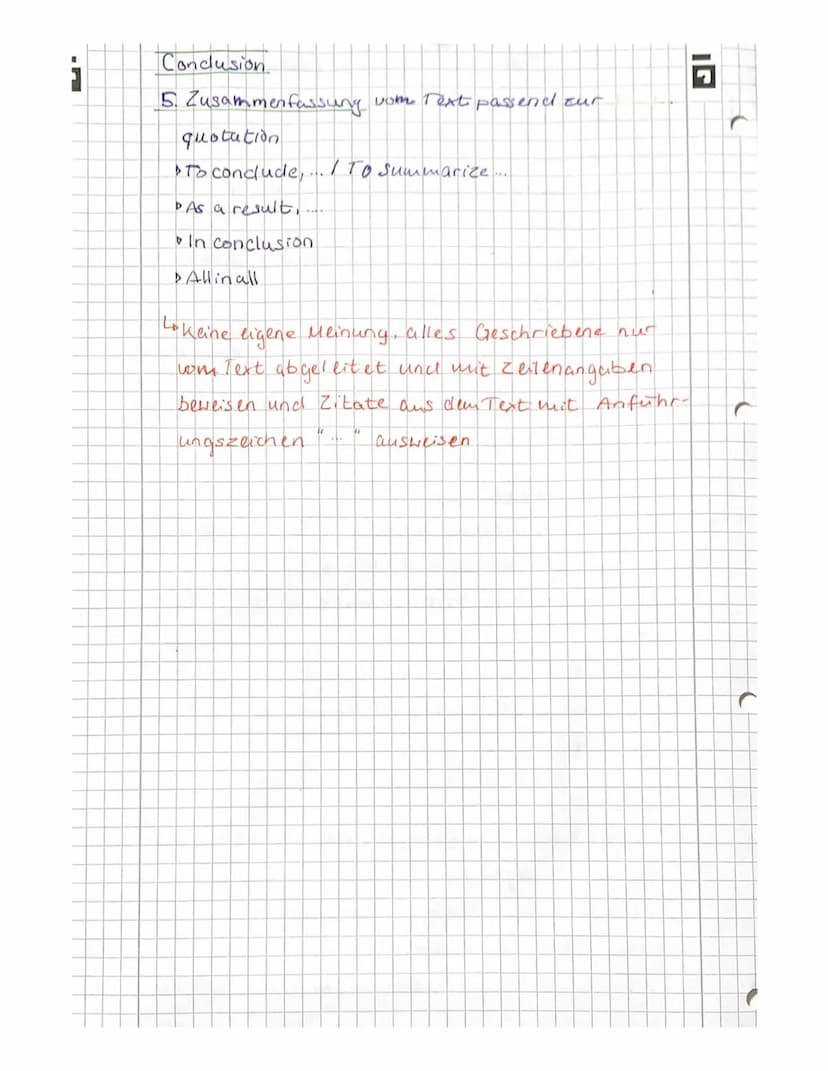 Conclusion
5. Zusammenfassung vom Text passend zur
quotation
▹To conclude, ... / To summarize ...
▹As a result, ....
▹In conclusion
▹All in all
↳ Keine eigene Meinung, alles Geschriebene nur
vom Text abgeleitet und mit Zeilenangaben
beweisen und Zitate aus dem Text mit Anführ-
ungszeichen " ... " ausweisen